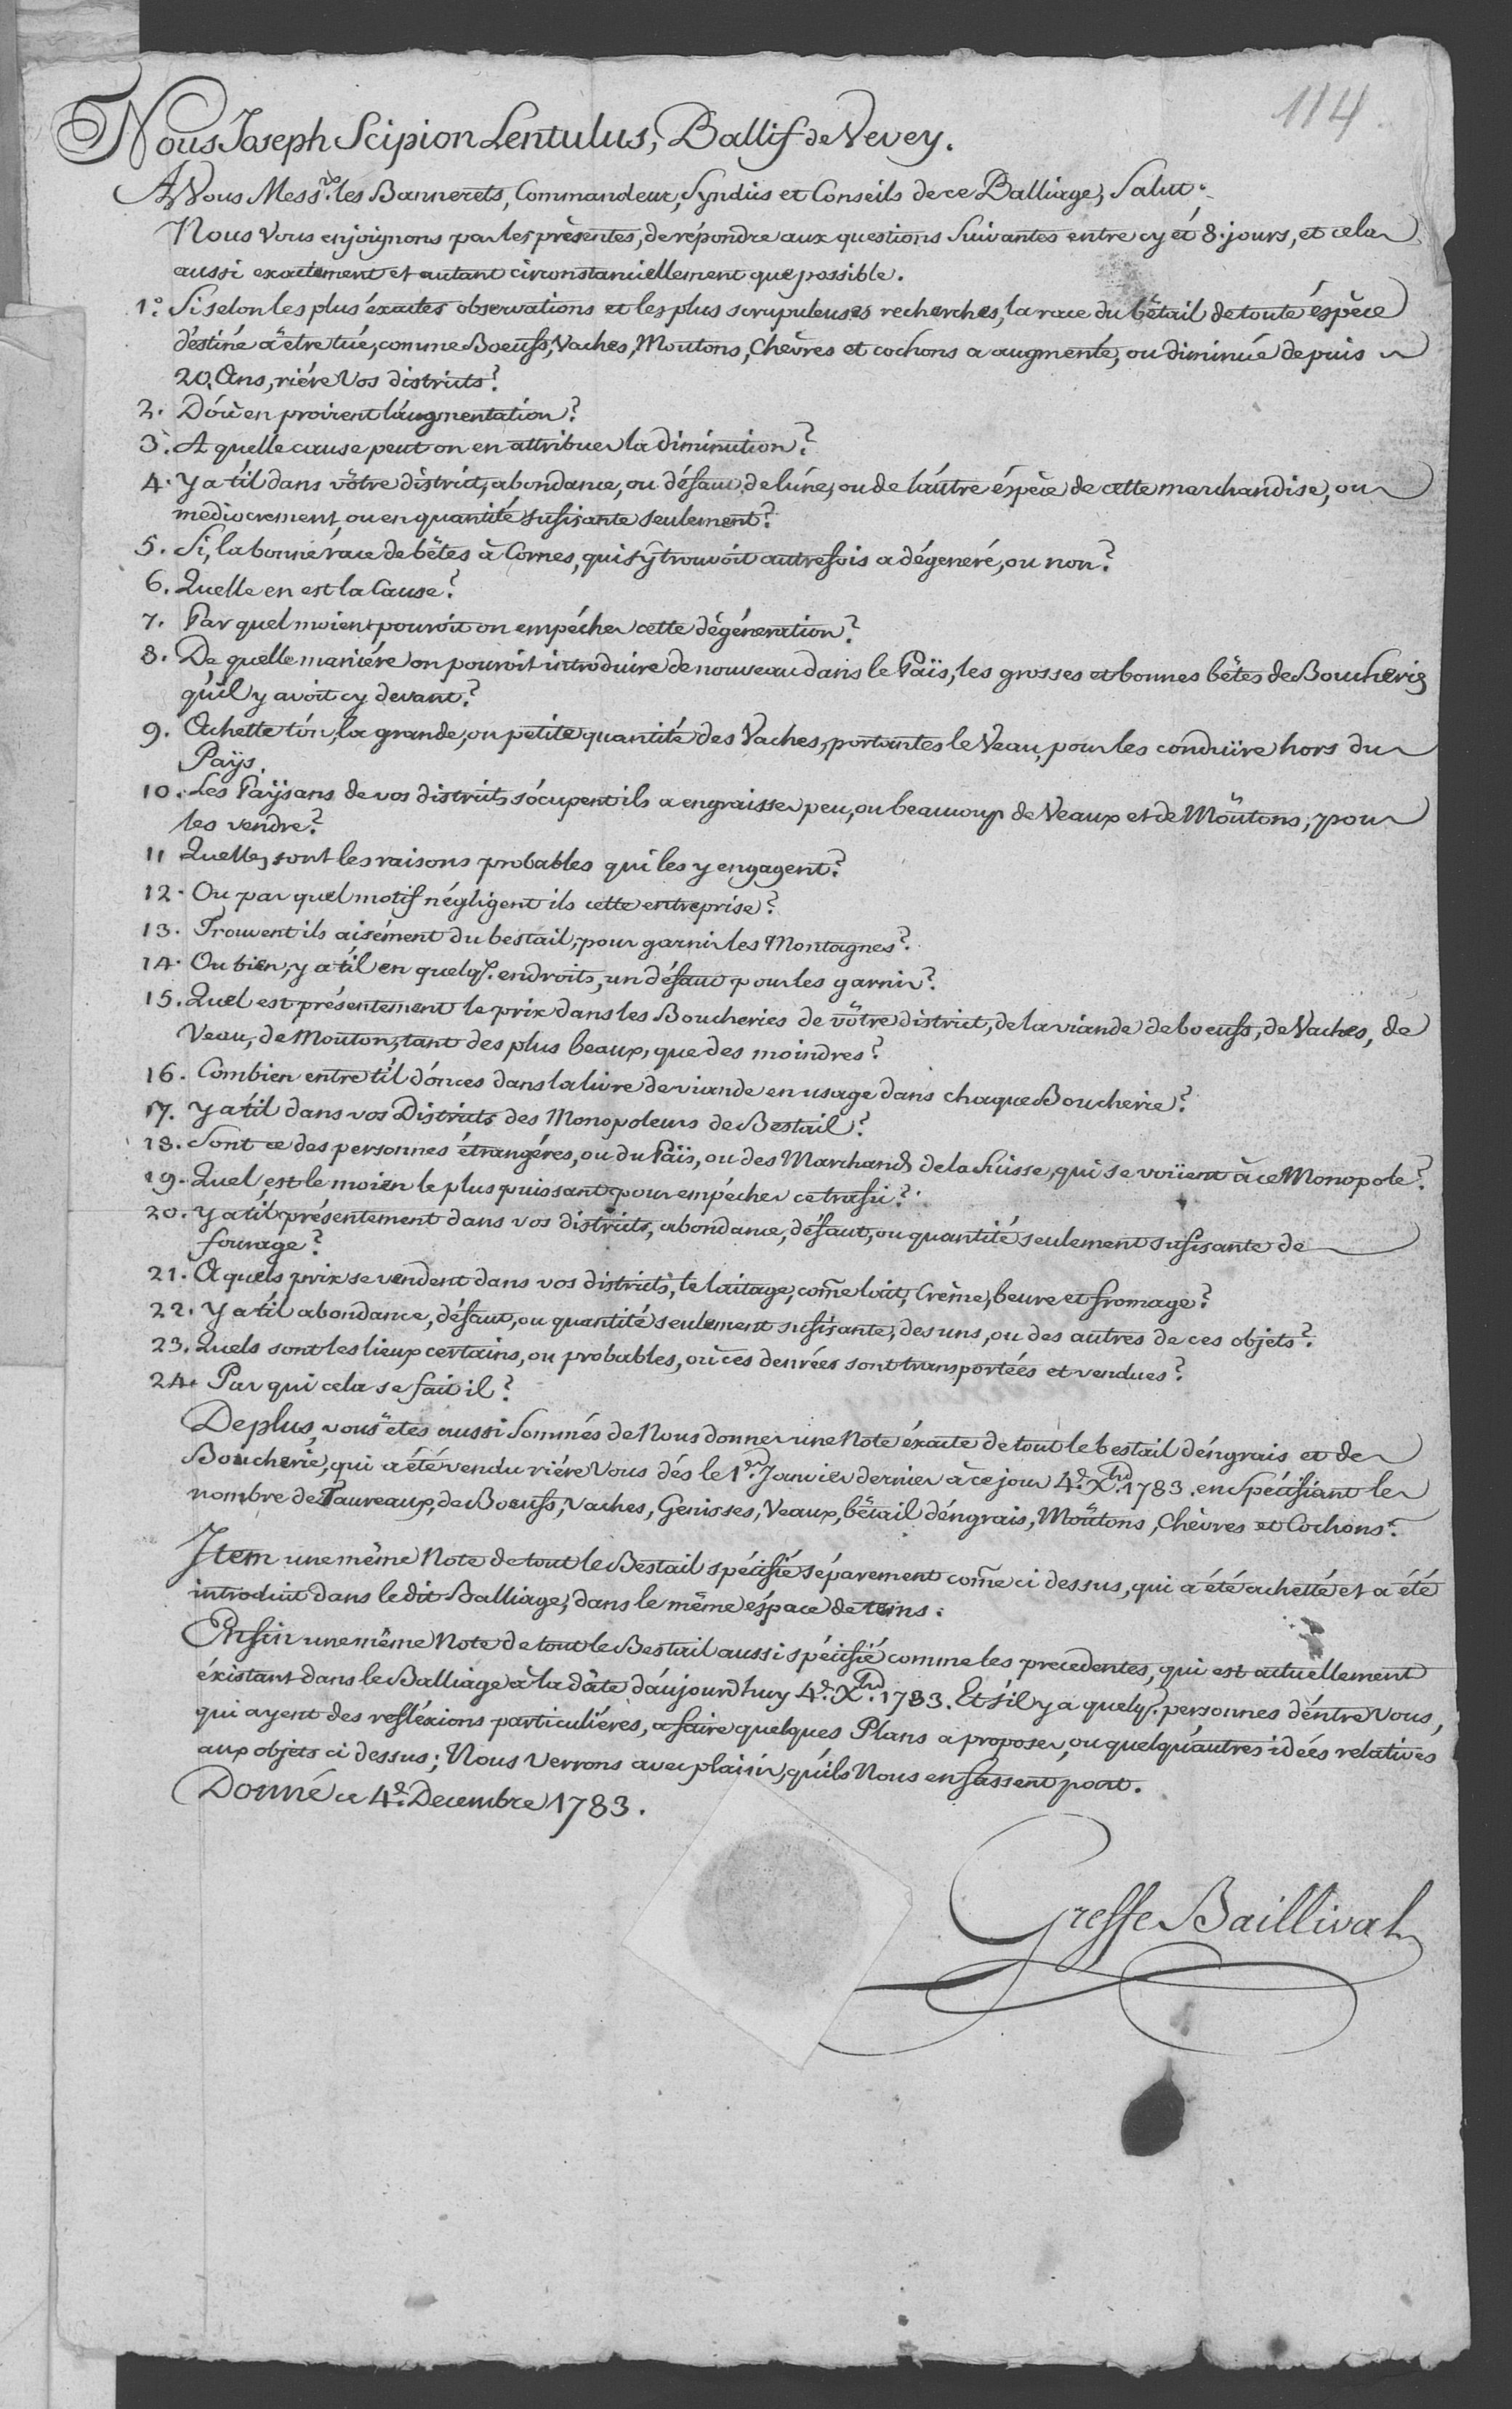 114.
Nous Joseph Scipion Lentulus, Ballif de Vevey.
A Vous Messrs. les Bannerets, Commandeur, Syndics et Conseils de ce Balliage, Salut.
Nous Vous enjoignons par les présentes, de répondre aux questions Suivantes entre cy et 8. jours, et cela
aussi exactement et autant circonstanciellement que possible.
1.° Si selon les plus éxactes observations et les plus scrupuleuses recherches, la race du bêtail de toute éspèce
déstiné à être tué, comme Boeufs, Vaches, Moutons, Chèvres et cochons a augmenté, ou diminué depuis
20. Ans, riére Vos districts?
2. D'óù en provient láugmentation?
3. A quelle cause peut on en attribuer la diminution?
4. Y a t'il dans vôtre district, abondance, ou défaut, de lúne, ou de láutre éspèce de cette marchandise, ou
médiocrement, ou en quantité sufisante seulement?
5. Si, la bonne race de bêtes à Cornes, qui s'y trouvoit autrefois a dégeneré, ou non?
6. Quelle en est la Cause?
7. Par quel moien pouroit on empécher cette dégéneration?
8. De quelle maniére on pouroit introduire de nouveau dans le Païs, les grosses et bonnes bêtes de Boucherie
qu'il y avoit cy devant?
9. Achette t'on, la grande, ou petite quantité des Vaches, portantes le Veau, pour les conduire hors du
Païs.
10. Les Païsans de vos districts s'ócupent ils a engraisser peu, ou beaucoup de Veaux et de Moutons, pour
les vendre?
11 Quelles sont les raisons probables qui les y engagent?
12. Ou par quel motif négligent ils cette entreprise?
13. Trouvent ils aisément du bestail, pour garnir les Montagnes?
14. Ou bien, y a t'il en quelqs. endroits, un défaut pour les garnir?
15. Quel est présentement le prix dans les Boucheries de vôtre district, de la viande de boeufs, de Vaches, de
Veau, de Mouton, tant des plus beaux, que des moindres?
16. Combien entre t'il d'ónces dans la livre de viande en usage dans chaque Boucherie?
17. Y a t'il dans vos Districts des Monopoleurs de Bestail?
18. Sont ce des personnes étrangéres, ou du Païs, ou des Marchands de la Suisse, qui se voüent à ce Monopole?
19. Quel est le moien le plus puissant pour empécher ce trafic?
20. Y a t'il présentement dans vos districts, abondance, défaut, ou quantité seulement sufisante de
fourage?
21. A quels prix se vendent dans vos districts, le laitage, com̃e lait, Crème, beure et fromage?
22. Y a t'il abondance, défaut, ou quantité seulement sufisante, des uns, ou des autres de ces objets?
23. Quels sont les lieux certains, ou probables, où ces denrées sont transportées et vendues?
24. Par qui cela se fait il?
De plus, vous êtes aussi Sommés de Nous donner une Note éxacte de tout le bestail d'éngrais et de
Boucherie, qui a été vendu riére Vous dés le 1er. Janvier dernier à ce jour 4e. Xbre. 1783. en Spécifiant le
nombre de Taureaux, de Boeufs, Vaches, Genisses, Veaux, bêtail d'éngrais, Moûtons, Chèvres et Cochons.
Item une même Note de tout le Bestail spécifié séparement com̃e ci dessus, qui a été achetté et a été
introduit dans le dit Balliage, dans le même éspace de tems.
Enfin une même Note de tout le Bestail aussi spécifié comme les precedentes, qui est actuellement
éxistant dans le Balliage à la dâte d'áujourdhuy 4e. Xbre. 1783. Et s'il y a quelqs. personnes d'éntre Vous,
qui ayent des refléxions particuliéres, a faire quelques Plans a proposer, ou quelqu'autres idées relatives
aux objets ci dessus; Nous Verrons avec plaisir, qu'ils Nous en fassent part.
Donné ce 4e. Decembre 1783.
Greffe Baillival